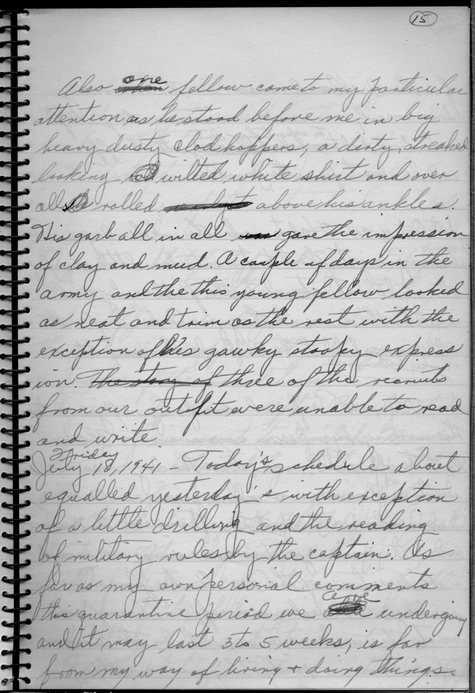 15
Also one fellow came to my particular
attention as he stood before me in big
heavy dusty clod hoppers, a dirty streaked
looking wilted white shirt and over
alls rolled above his ankles.
His garb all in all gave the impression
of clay and mud. A couple of days in the
army and the this young fellow looked
as neat and trim as the rest with the
exception of his gawky stoopy express
ion. three of the recruits
from our outfit were unable to read
and write.
Friday
July 18, 1941 - Today's schedule about
equalled yesterday's with exception
of a little drilling and the reading
of military rules by the captain. As
far as my own personal comments
this quarantine period we are undergoing
and it may last 3 to 5 weeks, is far
from my way of living + doing things.